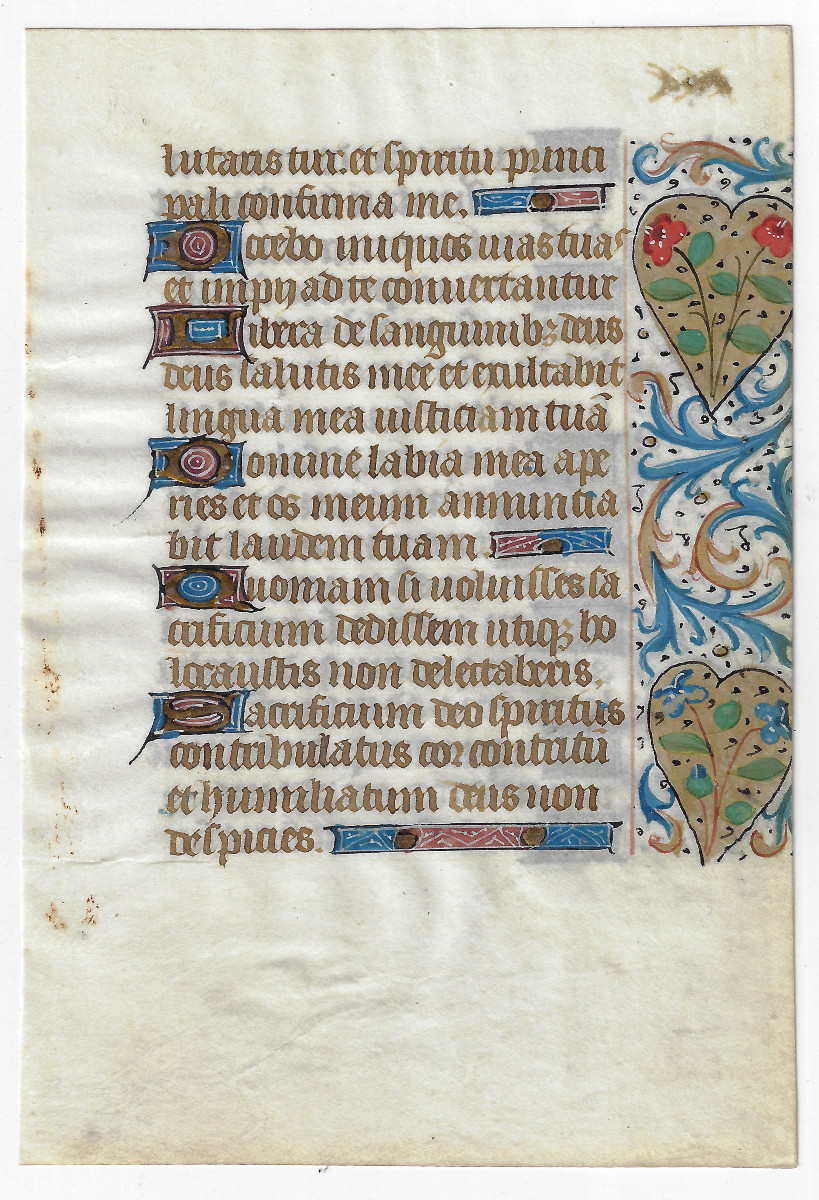 lutaris tui: et spiritu princi
pali confirma me.
Docebo iniquos uias tuas
et impij ad te conuertantur
Libera de sanguinibꝫ deus
deus salutis mee et exultabit
lingua mea iusticiam tuā
Domine labia mea ape
ries et os meum annuncia
bit laudem tuam
Quoniam si uoluisses sa
crificium dedissem utiqꝫ ho
locaustis non delectaberis.
Sacrificium deo spiritus
contribulatus cor contritū
et humiliatum deus non
despicies.